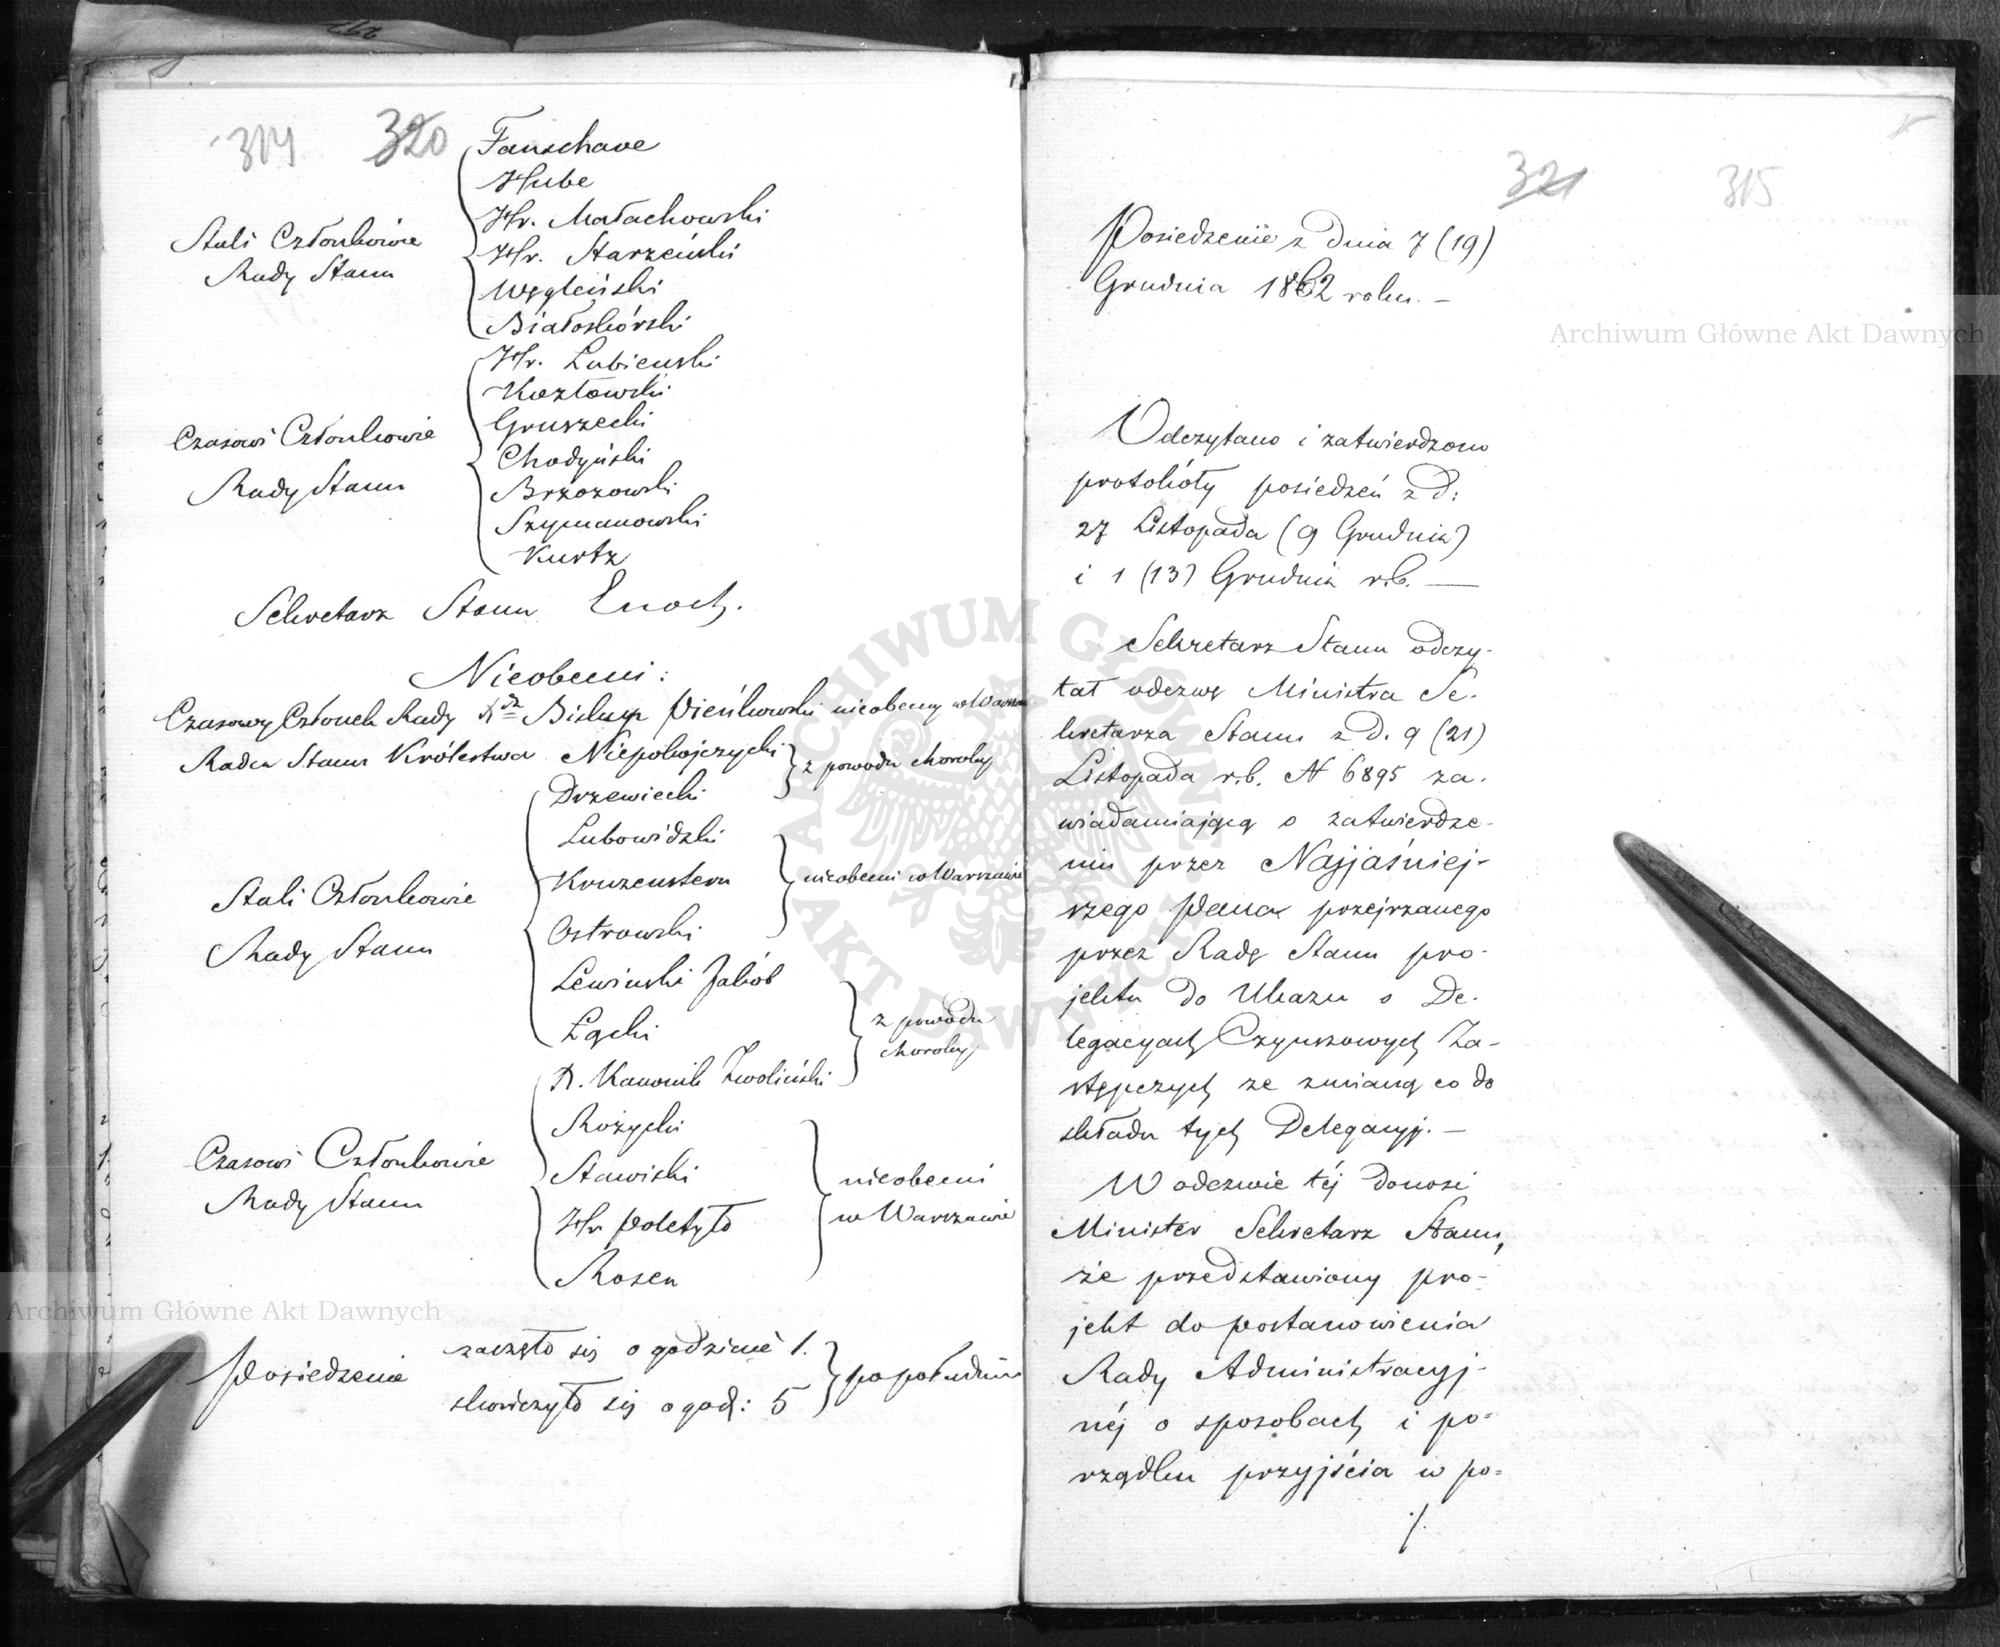 314 320
Fanschave
Hube
Hr. Małachowski
Stali Członkowie
Rady Stanu
Hr. Starzeński
Węgleński
Białoskórski
Hr. Łubieński
Kozłowski
Gruszecki
Czasowi Członkowie
Rady Stanu
Chodyński
Brzozowski
Szymanowski
Kurtz
Sekretarz Stanu Enoch.
Nieobecni:
Czasowy Członek Rady X. Biskup Pieńkowski nieobecny w Warsza
Radca Stanu Królestwa Niepokojczycki
z powodu choroby
Drzewiecki
Lubowidzki
Kruzenstern
nieobecni w Warszawie
Stali Członkowie
Rady Stanu
Ostrowski
Lewiński Jakób
Łącki
z powodu
choroby
X. Kanonik Zwoliński
Rożycki
Czasowi Członkowie
Rady Stanu
Stawiski
nieobecni
w Warszawie
Hr Poletyło
Rosen
Posiedzenie
zaczęło się o godzinie 1.
skończyło się o god: 5
po południu
321 315
Posiedzenie z dnia 7 (19)
Grudnia 1862 roku. —
Odczytano i zatwierdzono
protokóły posiedzeń z d:
27 Listopada (9 Grudnia)
i 1 (13) Grudnia r.b. —
Sekretarz Stanu odczy-
tał odezwę Ministra Se-
kretarza Stanu z d. 9 (21)
Listopada r.b. N 6895 za-
wiadamiającą o zatwierdze-
niu przez Najjaśniej-
szego Pana przejrzanego
przez Radę Stanu pro-
jektu do Ukazu o De-
legacyach Czynszowych Za-
stępczych ze zmianą co do
składu tych Delegacyj. —
W odezwie téj donosi
Minister Sekretarz Stanu,
że przedstawiony pro-
jekt do postanowienia
Rady Administracyj-
néj o sposobach i po=
rządku przyjścia w po=
./.
Archiwum Główne Akt Dawnych
Archiwum Główne Akt Dawnych
ARCHIWUM GŁÓWNE AKT DAWNYCH